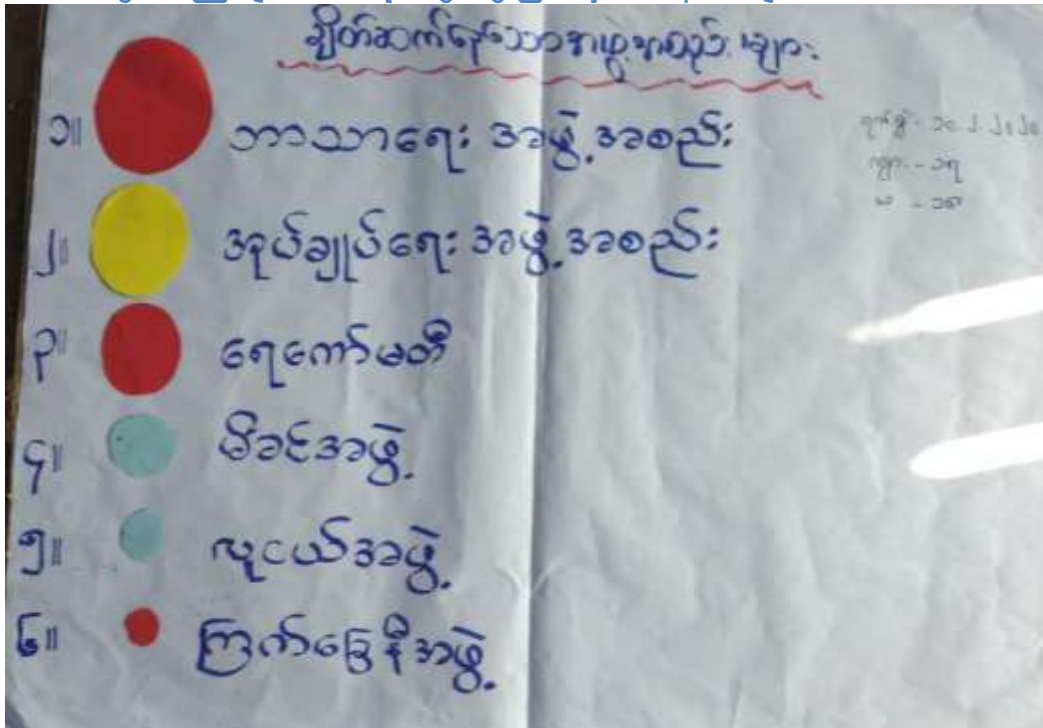 ချိတ်ဆက်နေသောအဖွဲ့အစည်းများ
၁။ ဘာသာရေး အဖွဲ့အစည်း
၂။ အုပ်ချုပ်ရေး အဖွဲ့အစည်း
၃။ ရေကော်မတီ
၄။ မိခင်အဖွဲ့
၅။ လူငယ်အဖွဲ့
၆။ ကြက်ခြေနီအဖွဲ့
ရက်စွဲ - ၁၀.၂.၂၀၂၀
ကျား - ၁၇
မ -